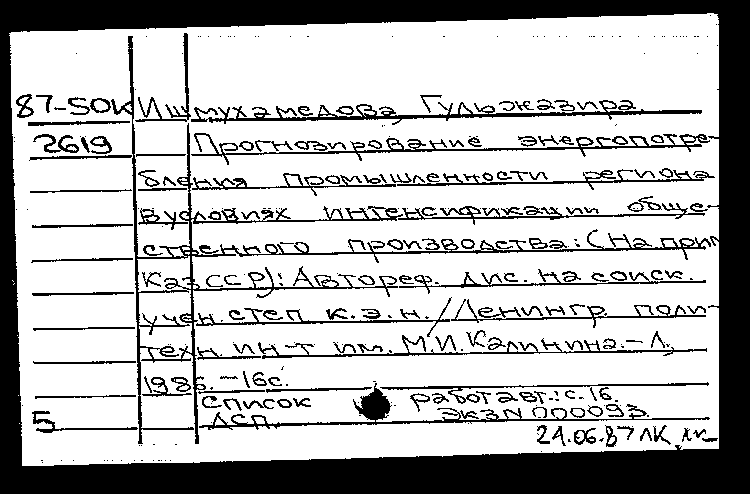 87-5ОК Ишмухамедова, Гульжазира.
2619 Прогнозирование энергопотре-
бления промышленности региона
в условиях интенсификации обще-
ственного производства: (На прим
КазССР): Автореф. дис. на соиск.
учен. степ к.э.н. / Ленингр. поли-
техн. ин-т им. М.И. Калинина. – Л.,
1986. – 16с.
Список работ авт.: с. 16.
5 ДСП. ЭКЗ N 000093.
24.06.87 ЛК